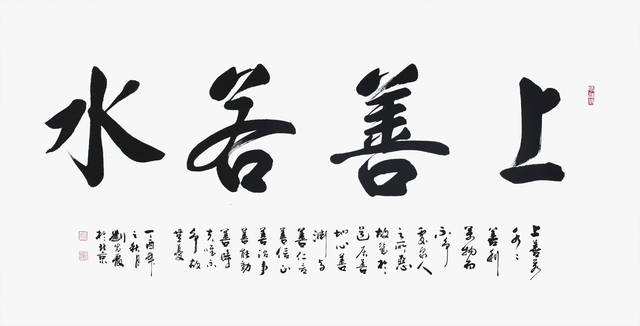 上善若水
上善若
水〻
善利
萬物而
不爭
處眾人
之所惡
故幾於
道居善
地心善
淵與
善仁言
善信正
善治事
善能動
善時
夫唯不
爭故
無憂
丁酉年
之秋月
於北京